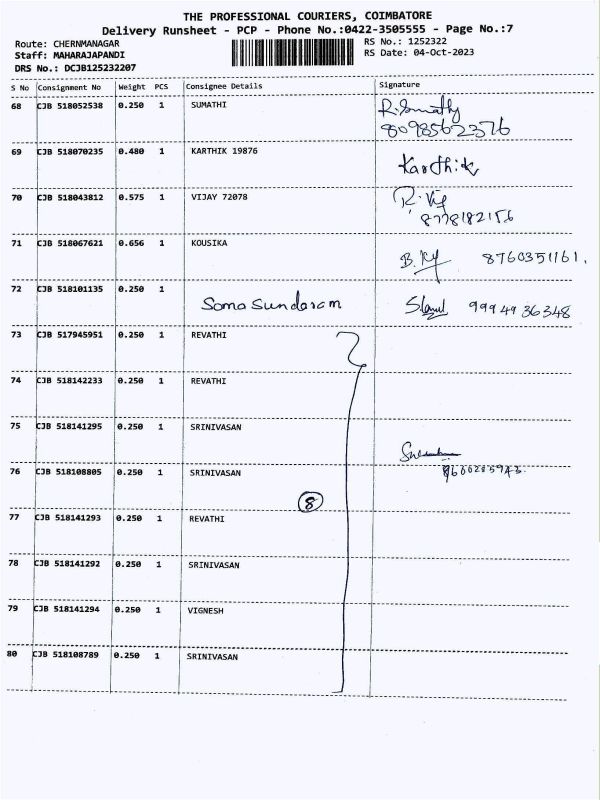 THE PROFESSIONAL COURIERS, COIMBATORE
Delivery Runsheet - PCP - Phone No.:0422-3505555 - Page No.:7
Route: CHERNMANAGAR
RS No.: 1252322
Staff: MAHARAJAPANDI
RS Date: 04-Oct-2023
DRS No.: DCJB125232207
S No Consignment No Weight PCS Consignee Details Signature
68 CJB 518052538 0.250 1 SUMATHI R.Sumathy
8098562376
69 CJB 518070235 0.480 1 KARTHIK 19876 Karthik
70 CJB 518043812 0.575 1 VIJAY 72078
8778182156
71 CJB 518067621 0.656 1 KOUSIKA 8760351161.
72 CJB 518101135 0.250 1 Soma Sundaram 9994936348
73 CJB 517945951 0.250 1 REVATHI
74 CJB 518142233 0.250 1 REVATHI
75 CJB 518141295 0.250 1 SRINIVASAN
76 CJB 518108805 0.250 1 SRINIVASAN
8
77 CJB 518141293 0.250 1 REVATHI
78 CJB 518141292 0.250 1 SRINIVASAN
79 CJB 518141294 0.250 1 VIGNESH
80 CJB 518108789 0.250 1 SRINIVASAN